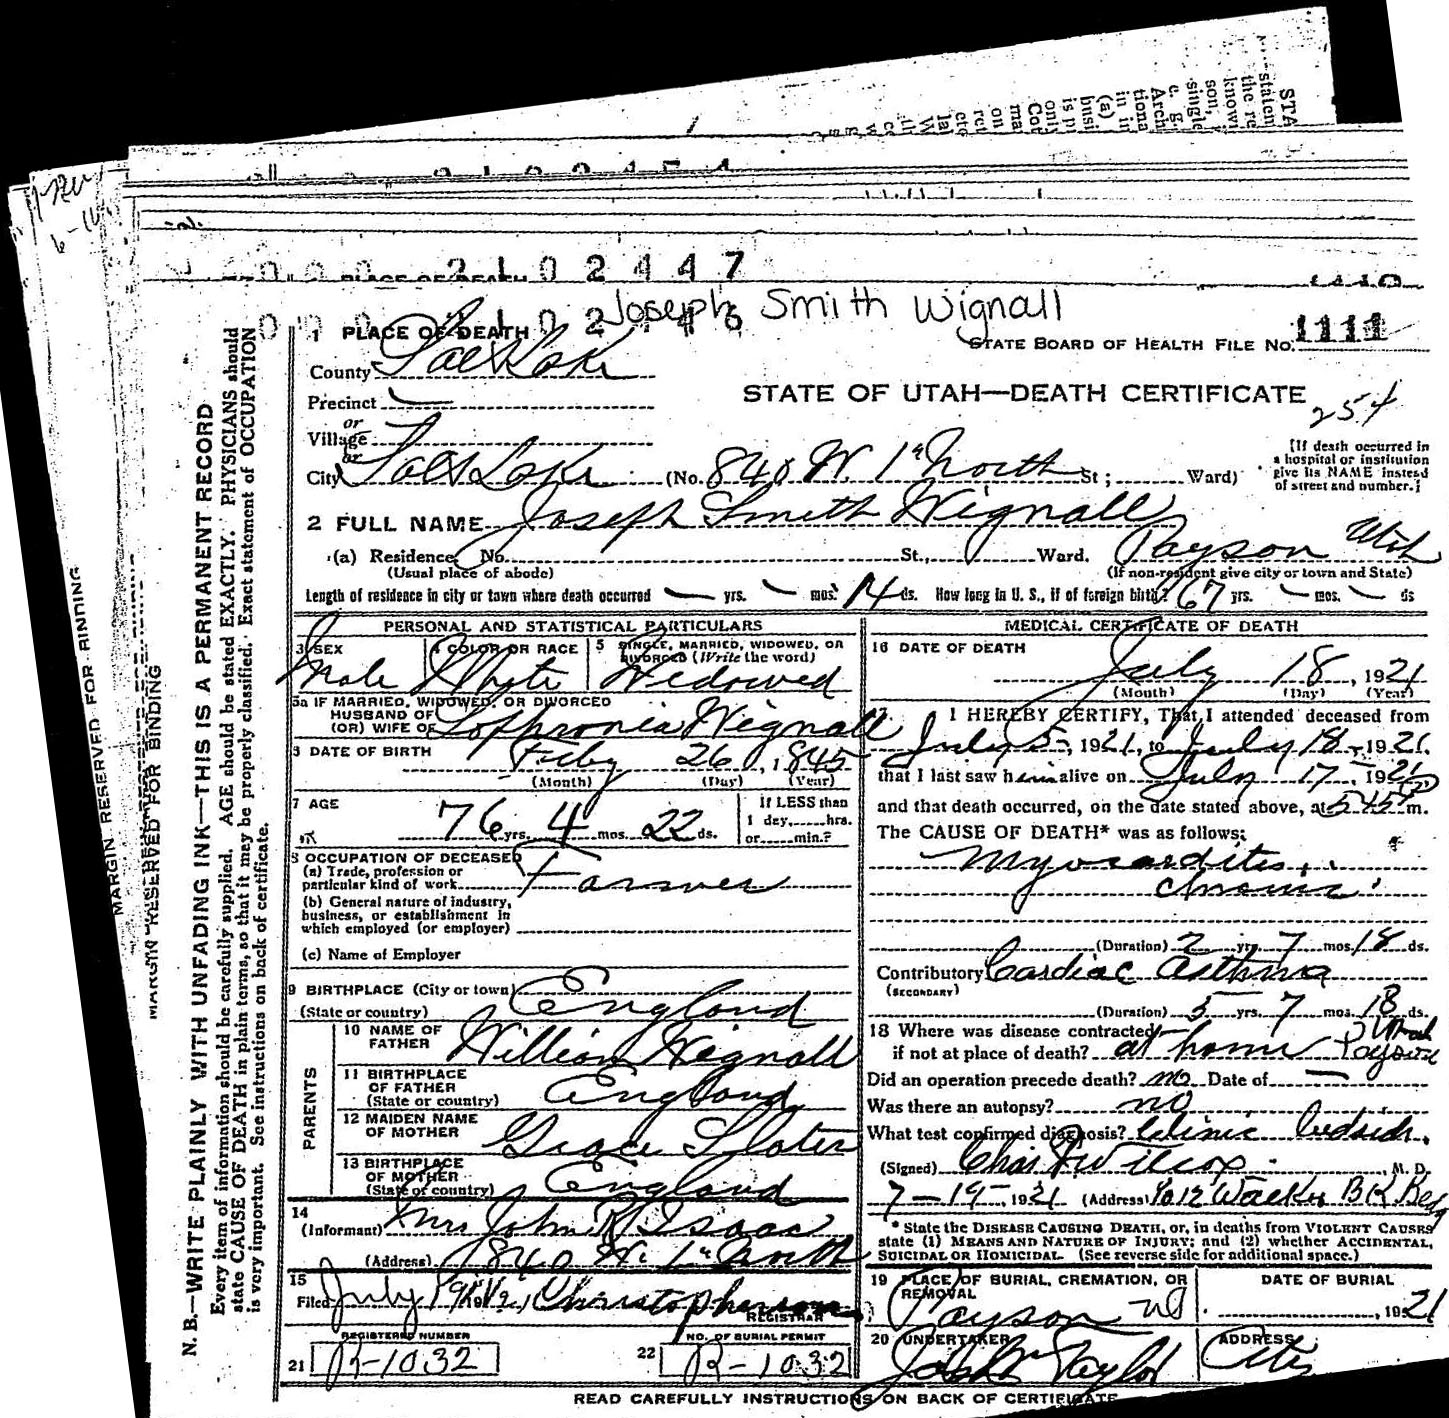 STA
statem
the re
knowi
son,
single
e. g.
Arch
tiona
in in
(a)
busi
is p
only
Cor
ma
on
ret
etc
0 0 0 2 1 0 2 4 4 7
Joseph Smith Wignall
1 PLACE OF DEATH
STATE BOARD OF HEALTH FILE No. 1111
County Salt Lake
STATE OF UTAH—DEATH CERTIFICATE
254
Precinct —
or
Village
or
City Salt Lake (No. 840 W. 1st North St; Ward)
[If death occurred in
a hospital or institution
give its NAME instead
of street and number.]
2 FULL NAME Joseph Smith Wignall
(a) Residence, No. St., Ward. Payson Utah
(Usual place of abode) (If non-resident give city or town and State)
Length of residence in city or town where death occurred — yrs. — mos. 14 ds. How long in U. S., if of foreign birth? 67 yrs. — mos. — ds
PERSONAL AND STATISTICAL PARTICULARS
3 SEX
Male
4 COLOR OR RACE
White
5 SINGLE, MARRIED, WIDOWED, OR
DIVORCED (Write the word)
Widowed
5a IF MARRIED, WIDOWED, OR DIVORCED
HUSBAND OF
(OR) WIFE OF Sophronia Wignall
6 DATE OF BIRTH Feby 26, 1845
(Month) (Day) (Year)
7 AGE
76 yrs. 4 mos. 22 ds.
If LESS than
1 day, hrs.
or min.?
8 OCCUPATION OF DECEASED
(a) Trade, profession or
particular kind of work Farmer
(b) General nature of industry,
business, or establishment in
which employed (or employer)
(c) Name of Employer
9 BIRTHPLACE (City or town)
(State or country) England
PARENTS
10 NAME OF
FATHER William Wignall
11 BIRTHPLACE
OF FATHER
(State or country) England
12 MAIDEN NAME
OF MOTHER Grace Slater
13 BIRTHPLACE
OF MOTHER
(State or country) England
14
(Informant) Mrs John R Isaac
(Address) 840 W. 1st North
15
Filed July 19 1921 Christopherson
REGISTRAR
REGISTERED NUMBER
21 R-1032
NO. OF BURIAL PERMIT
22 R-1032
MEDICAL CERTIFICATE OF DEATH
16 DATE OF DEATH
July 18, 1921
(Month) (Day) (Year)
17 I HEREBY CERTIFY, That I attended deceased from
July 5, 1921, to July 18, 1921.
that I last saw him alive on July 17, 1921
and that death occurred, on the date stated above, at 5:45 m.
The CAUSE OF DEATH* was as follows:
Myocarditis
chronic.
(Duration) 2 yrs 7 mos. 18 ds.
Contributory Cardiac Asthma
(SECONDARY)
(Duration) 5 yrs. 7 mos. 18 ds.
18 Where was disease contracted
if not at place of death? at home Payson Utah
Did an operation precede death? no Date of —
Was there an autopsy? no
What test confirmed diagnosis? Clinic bedside.
(Signed) Chas F Wilcox, M. D.
7-19-, 1921 (Address) 1012 Walker BK Bldg
* State the DISEASE CAUSING DEATH, or, in deaths from VIOLENT CAUSES
state (1) MEANS AND NATURE OF INJURY; and (2) whether ACCIDENTAL,
SUICIDAL OR HOMICIDAL. (See reverse side for additional space.)
19 PLACE OF BURIAL, CREMATION, OR
REMOVAL
Payson
DATE OF BURIAL
, 1921
20 UNDERTAKER
Taylor
ADDRESS
City
READ CAREFULLY INSTRUCTIONS ON BACK OF CERTIFICATE
MARGIN RESERVED FOR BINDING
MARGIN RESERVED FOR BINDING
N. B.—WRITE PLAINLY WITH UNFADING INK—THIS IS A PERMANENT RECORD
Every item of information should be carefully supplied. AGE should be stated EXACTLY. PHYSICIANS should
state CAUSE OF DEATH in plain terms, so that it may be properly classified. Exact statement of OCCUPATION
is very important. See instructions on back of certificate.